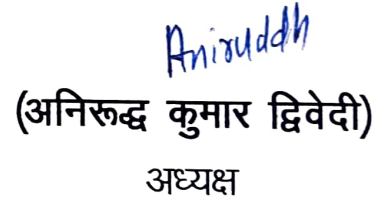 Aniruddh
(अनिरूद्ध कुमार द्विवेदी)
अध्यक्ष